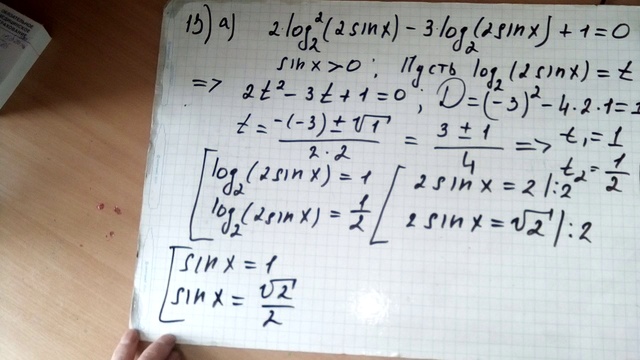 13) а) 2·log₂²(2sinx) − 3·log₂(2sinx) + 1 = 0
sinx > 0 ; Пусть log₂(2sinx) = t
=> 2t² − 3t + 1 = 0 ; D = (−3)² − 4·2·1 = 1
t = (−(−3) ± √1)/(2·2) = (3 ± 1)/4 => t₁ = 1
t₂ = 1/2
[ log₂(2sinx) = 1 [ 2sinx = 2 |:2
log₂(2sinx) = 1/2 2sinx = √2 |:2
[ sinx = 1
sinx = √2/2